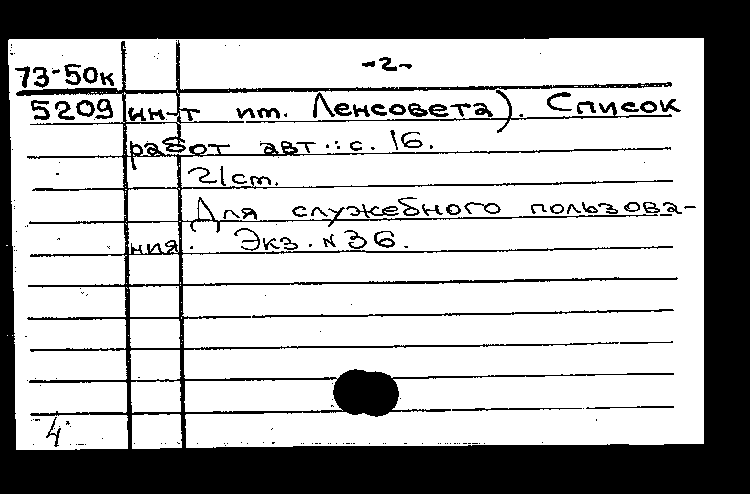 -2-
73-50к
5209 ин-т им. Ленсовета). Список
работ авт.: с. 16.
21 см.
Для служебного пользова-
ния. Экз. N 36.
4